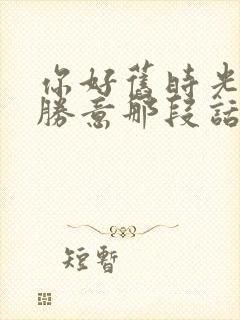 你好舊時光
勝意那段話
短暫